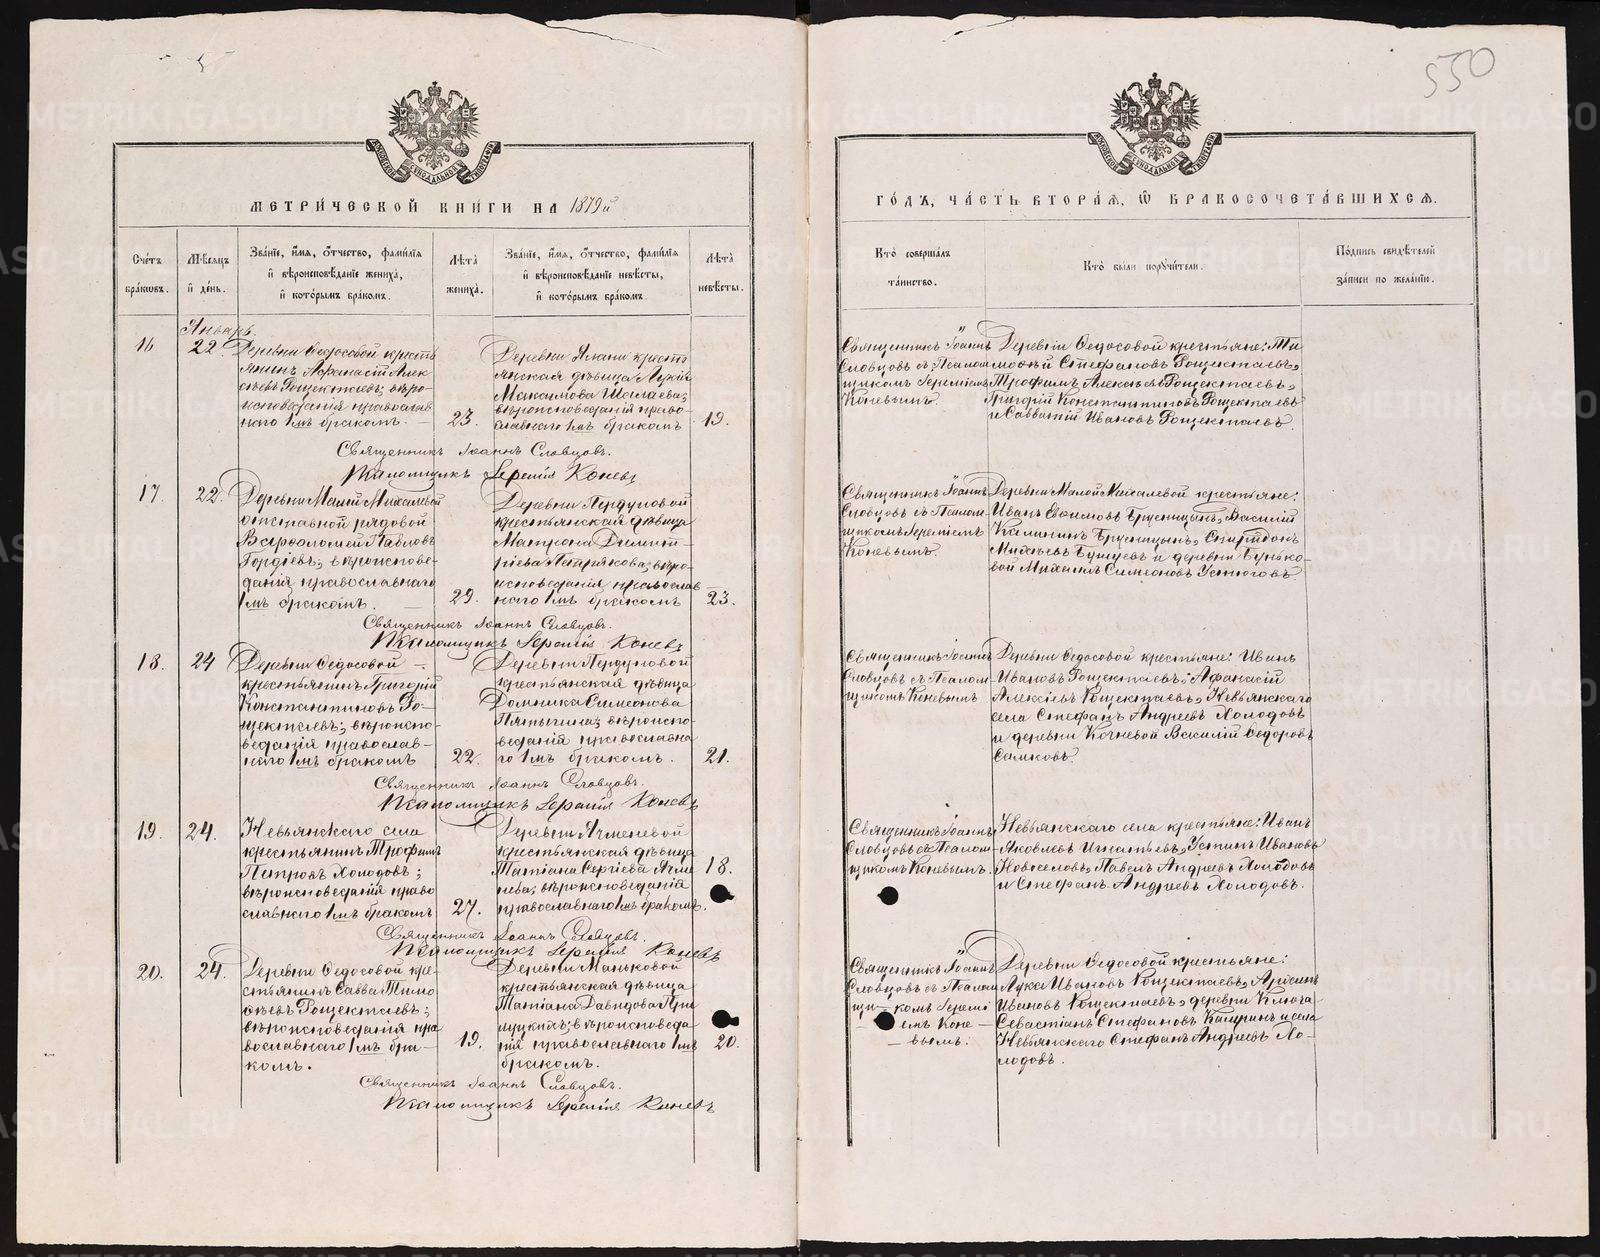 550
МЕТРИ́ЧЕСКОЙ КНИ́ГИ НА 1879й
Сче́тъ бра́кωвъ.
Мѣ́сяцъ и҆ де́нь.
Зва́нїе, и҆́мѧ, ѻ҆́тчество, фами́лїѧ и҆ вѣроисповѣ́данїе жениха̀, и҆ кото́рымъ бра́комъ.
Лѣта̀ жениха̀.
Зва́нїе, и҆́мѧ, ѻ҆́тчество, фами́лїѧ и҆ вѣроисповѣ́данїе невѣ́сты, и҆ кото́рымъ бра́комъ.
Лѣта̀ невѣ́сты.
Январь.
16
22
Деревни Ѳедосовой кресть
янинъ Аѳанасій Алек
сѣевъ Рощектаевъ; вѣро-
исповѣданія православ
наго 1мъ бракомъ.
23.
Деревни крестъ
янская дѣвица
Максимова
вѣроисповѣданія право-
славнаго 1мъ бракомъ
19.
Священникъ Іоаннъ Словцовъ.
Псаломщикъ Іеремія Коневъ
17.
22.
Деревни Малой Михалевой
отставной рядовой
Варѳоломей Павловъ
Гордѣевъ; вѣроисповѣ-
данія православнаго
1мъ бракомъ.
29.
Деревни Пердуновой
крестьянская дѣвица
Матрона Димит-
ріева вѣро-
исповѣданія православ
наго 1мъ бракомъ
23.
Священникъ Іоаннъ Словцовъ.
Псаломщикъ Іеремія Коневъ
18.
24
Деревни Ѳедосовой
крестьянинъ Григорій
Константиновъ Ро-
щектаевъ; вѣроиспо-
вѣданія православ-
наго 1мъ бракомъ
22.
Деревни Пердуновой
крестьянская дѣвица
Домника Симеонова
Пятыгина; вѣроиспо-
вѣданія православна
го 1мъ бракомъ.
21.
Священникъ Іоаннъ Словцовъ.
Псаломщикъ Іеремія Коневъ
19.
24.
Невьянскаго села
крестьянинъ Трофимъ
Петровъ Холодовъ;
вѣроисповѣданія право
славнаго 1мъ бракомъ
27.
Деревни Ячменевой
крестьянская дѣвица
Татіана Сергіева Ячме
нева; вѣроисповѣданія
православнаго 1мъ бракомъ.
18.
Священникъ Іоаннъ Словцовъ.
Псаломщикъ Іеремія Коневъ
20.
24.
Деревни Ѳедосовой кре-
стьянинъ Савва Тимо
ѳеевъ Рощектаевъ;
вѣроисповѣданія пра
вославнаго 1мъ бра-
комъ.
19.
Деревни Маньковой
крестьянская дѣвица
Татіана Давидова При
вѣроисповѣда
нія православнаго 1мъ
бракомъ.
20.
Священникъ Іоаннъ Словцовъ.
Псаломщикъ Іеремія Коневъ
ГО́ДЪ, ЧА́СТЬ ВТОРА́Ѧ, Ѽ БРАКОСОЧЕТА́ВШИХСѦ.
Кто̀ соверша́лъ та́инство.
Кто̀ бы́ли порꙋчи́тели.
По́дпись свидѣ́телей за́писи по жела́нїю.
Священникъ Іоаннъ
Словцовъ съ Псалом
щикомъ Іереміемъ
Коневымъ.
Деревни Ѳедосовой крестьяне: Ти
моѳей Стефановъ Рощектаевъ,
Трофимъ Алексѣевъ Рощектаевъ,
Григорій Константиновъ Рощектаевъ
и Савватій Ивановъ Рощектаевъ.
Священникъ Іоаннъ
Словцовъ съ Псалом-
щикомъ Іереміемъ
Коневымъ.
Деревни Малой Михалевой крестьяне:
Иванъ Евѳимовъ Брусницынъ, Василій
Калининъ Брусницынъ, Спиридонъ
и деревни Бунько-
вой Михаилъ Симеоновъ Устюговъ
Священникъ Іоаннъ
Словцовъ съ Псалом-
щикомъ Коневымъ
Деревни Ѳедосовой крестьяне: Иванъ
Ивановъ Рощектаевъ, Аѳанасій
Алексѣевъ Рощектаевъ, Невьянскаго
села Стефанъ Андреевъ Холодовъ
и деревни Кочневой Василій Ѳедоровъ
Самковъ.
Священникъ Іоаннъ
Словцовъ съ Псалом-
щикомъ Коневымъ.
Невьянскаго села крестьяне: Иванъ
Яковлевъ Игнатьевъ, Устинъ Ивановъ
Новоселовъ, Павелъ Андреевъ Холодовъ
и Стефанъ Андреевъ Холодовъ.
Священникъ Іоаннъ
Словцовъ съ Псалом
щи- комъ Іеремі
емъ Коне-
вымъ.
Деревни Ѳедосовой крестьяне:
Лука Ивановъ Рощектаевъ, Арсеній
Ивановъ Рощектаевъ, деревни Ключа-
Севастіанъ Стефановъ и села
Невьянскаго Стефанъ Андреевъ Хо-
лодовъ.
METRIKI.GASO-URAL.RU